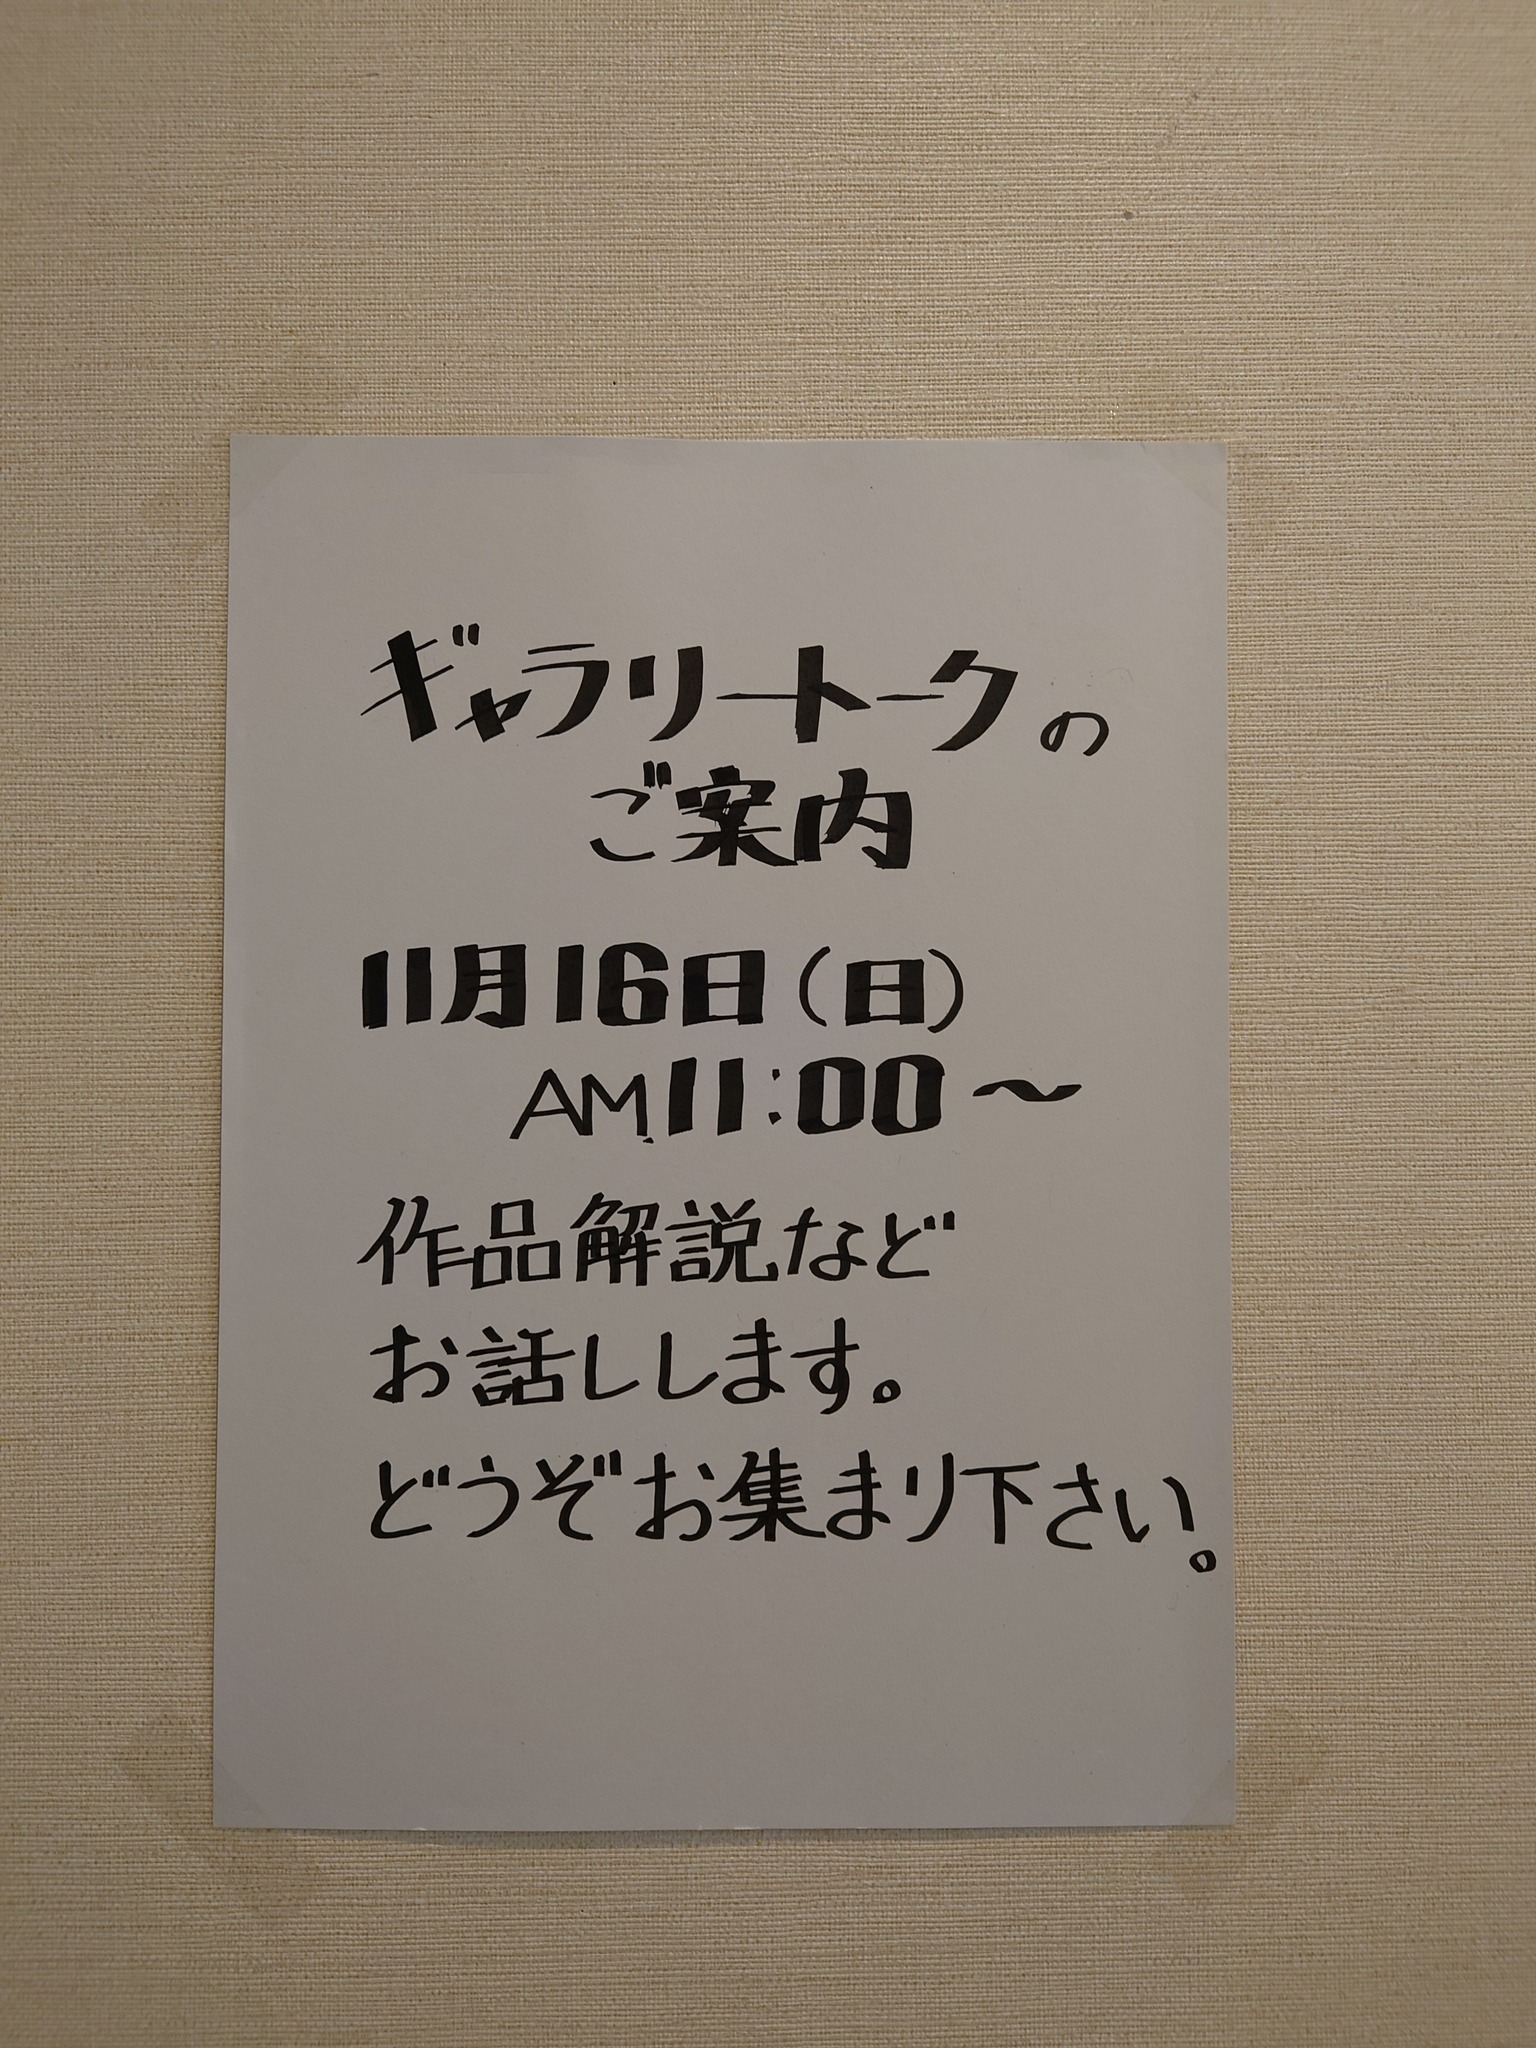 ギャラリートークの
ご案内
11月16日(日)
AM.11:00〜
作品解説など
お話しします。
どうぞお集まり下さい。